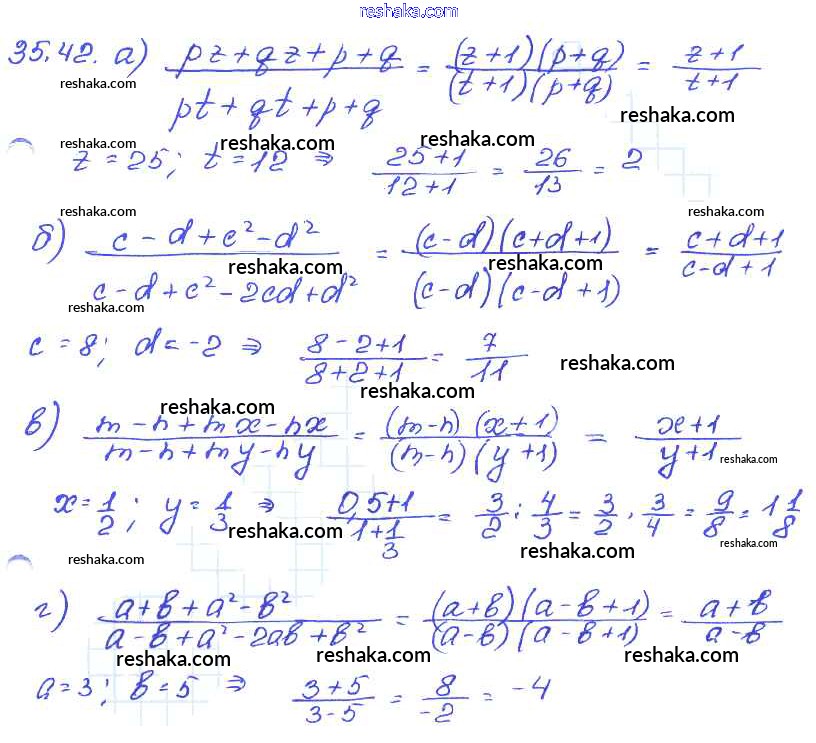 reshaka.com
35.42. а) (pz + qz + p + q)/(pt + qt + p + q) = ((z+1)(p+q))/((t+1)(p+q)) = (z+1)/(t+1)
reshaka.com reshaka.com reshaka.com
reshaka.com reshaka.com reshaka.com
z = 25; t = 12 ⇒ (25+1)/(12+1) = 26/13 = 2
reshaka.com reshaka.com
б) (c - d + c² - d²)/(c - d + c² - 2cd + d²) = ((c-d)(c+d+1))/((c-d)(c-d+1)) = (c+d+1)/(c-d+1)
reshaka.com reshaka.com
reshaka.com
c = 8; d = -2 ⇒ (8-2+1)/(8+2+1) = 7/11
reshaka.com
reshaka.com
reshaka.com
в) (m - n + mx - nx)/(m - n + my - ny) = ((m-n)(x+1))/((m-n)(y+1)) = (x+1)/(y+1)
reshaka.com
x = 1/2; y = 1/3 ⇒ (0,5+1)/(1+1/3) = 3/2 : 4/3 = 3/2 · 3/4 = 9/8 = 1 1/8
reshaka.com reshaka.com
reshaka.com reshaka.com
reshaka.com
г) (a + b + a² - b²)/(a - b + a² - 2ab + b²) = ((a+b)(a-b+1))/((a-b)(a-b+1)) = (a+b)/(a-b)
reshaka.com reshaka.com reshaka.com
a = 3; b = 5 ⇒ (3+5)/(3-5) = 8/-2 = -4